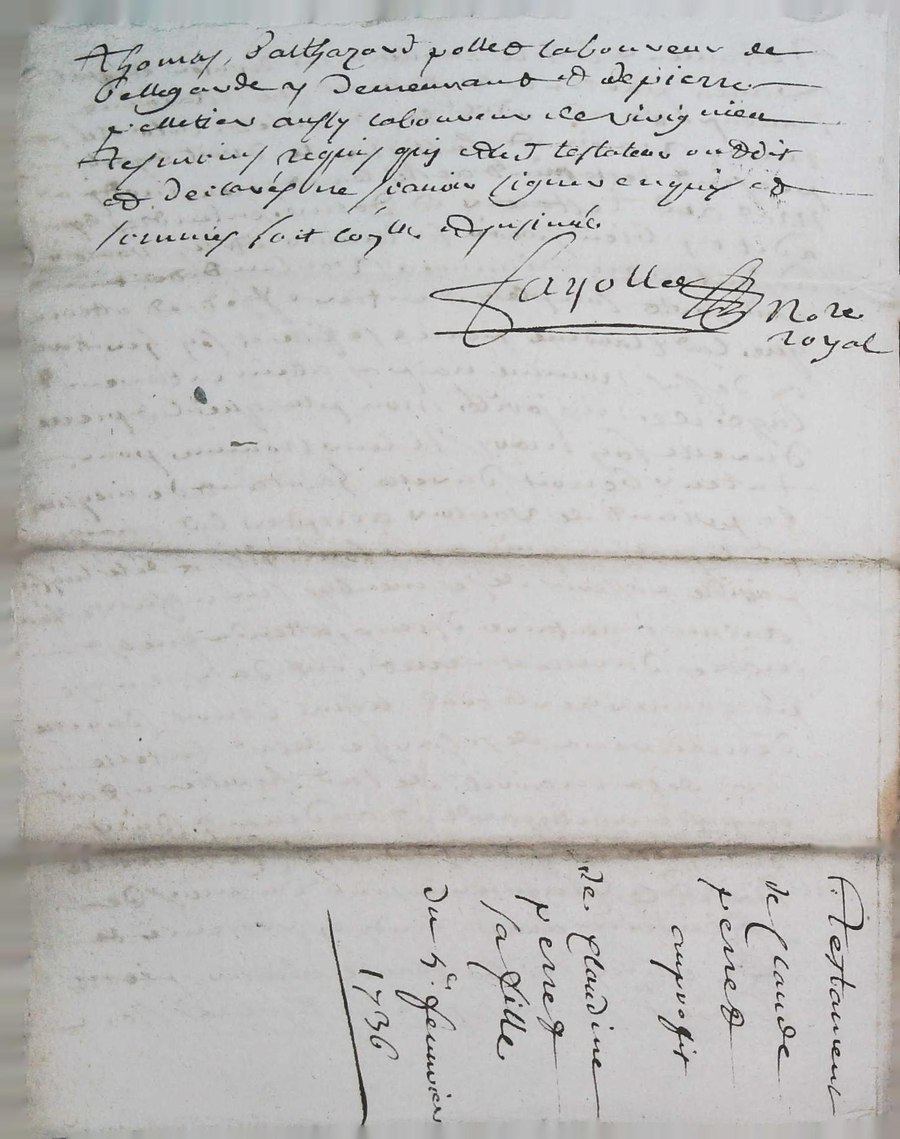 Thomas, Balthazard pollet laboureur de
bellegarde y demeurant et de pierre
pelletier aussy laboureur de
tesmoins requis quy et led testateur ont dit
et declarés ne scavoir signer enquis et
sommés soit
fayolle Nore
royal
Testament
de Claude
perret
au profit
de Claudine
perret
sa fille
du 5e feuvrier
1736